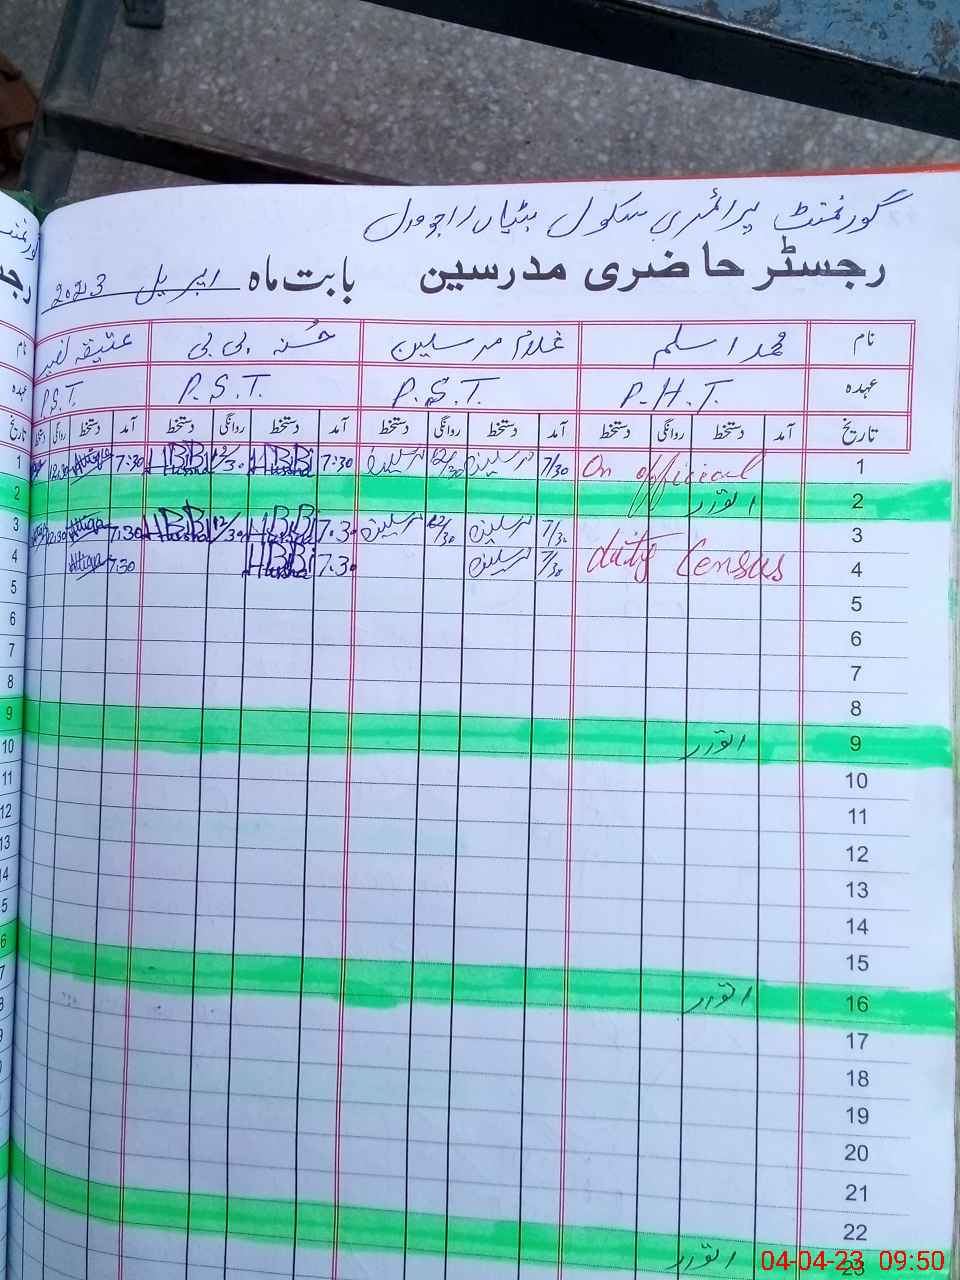 گورنمنٹ پرائمری سکول بٹیاں راجوول
رجسٹر حاضری مدرسین بابت ماہ اپریل 2023
نام محمد اسلم غلام مرسلین حُسنہ بی بی عتیقہ
عہدہ P.H.T. P.S.T. P.S.T. P.S.T.
تاریخ آمد دستخط روانگی دستخط آمد دستخط روانگی دستخط آمد دستخط روانگی دستخط آمد دستخط روانگی
1 On official 7/30 مرسلین 12/30 مرسلین 7:30 HBiBi Husna 12/30 HBiBi Husna 7:30 Attiqa 12:30
2 اتوار
3 7/30 مرسلین 12/30 مرسلین 7.30 HBiBi Husna 12/30 HBiBi Husna 7.30 Attiqa 12.30
4 duty Census 7/30 مرسلین 7.30 HBiBi Husna 7.30 Attiqa
5
6
7
8
9 اتوار
10
11
12
13
14
15
16 اتوار
17
18
19
20
21
22
23 اتوار
04-04-23 09:50